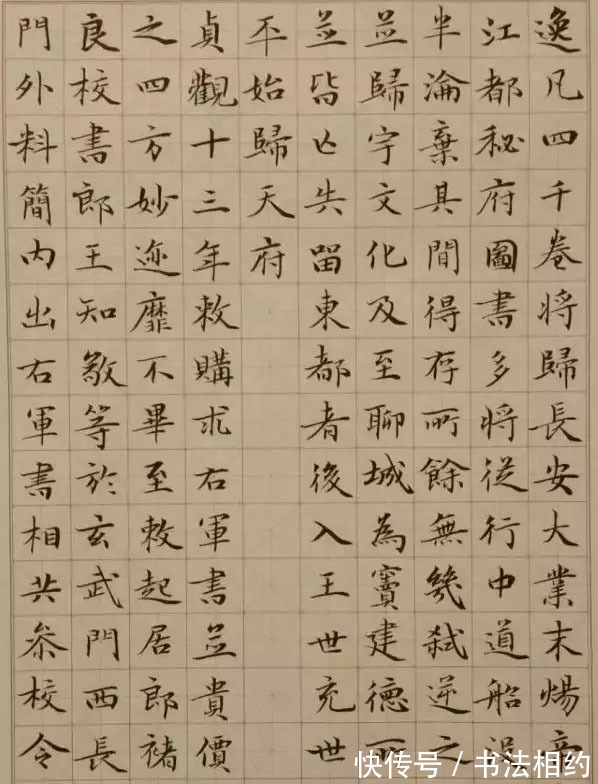 逸凡四千卷將歸長安大業末煬帝
江都秘府圖書多將從行中道船
半淪棄其間得存所餘無幾弒逆之
並歸宇文化及至聊城為竇建德所
並皆亡失留東都者後入王世充世
平始歸天府
貞觀十三年敕購求右軍書並貴價
之四方妙迹靡不畢至敕起居郎褚
良校書郎王知敬等於玄武門西長
門外料簡內出右軍書相共叅校令
快传号/书法相约